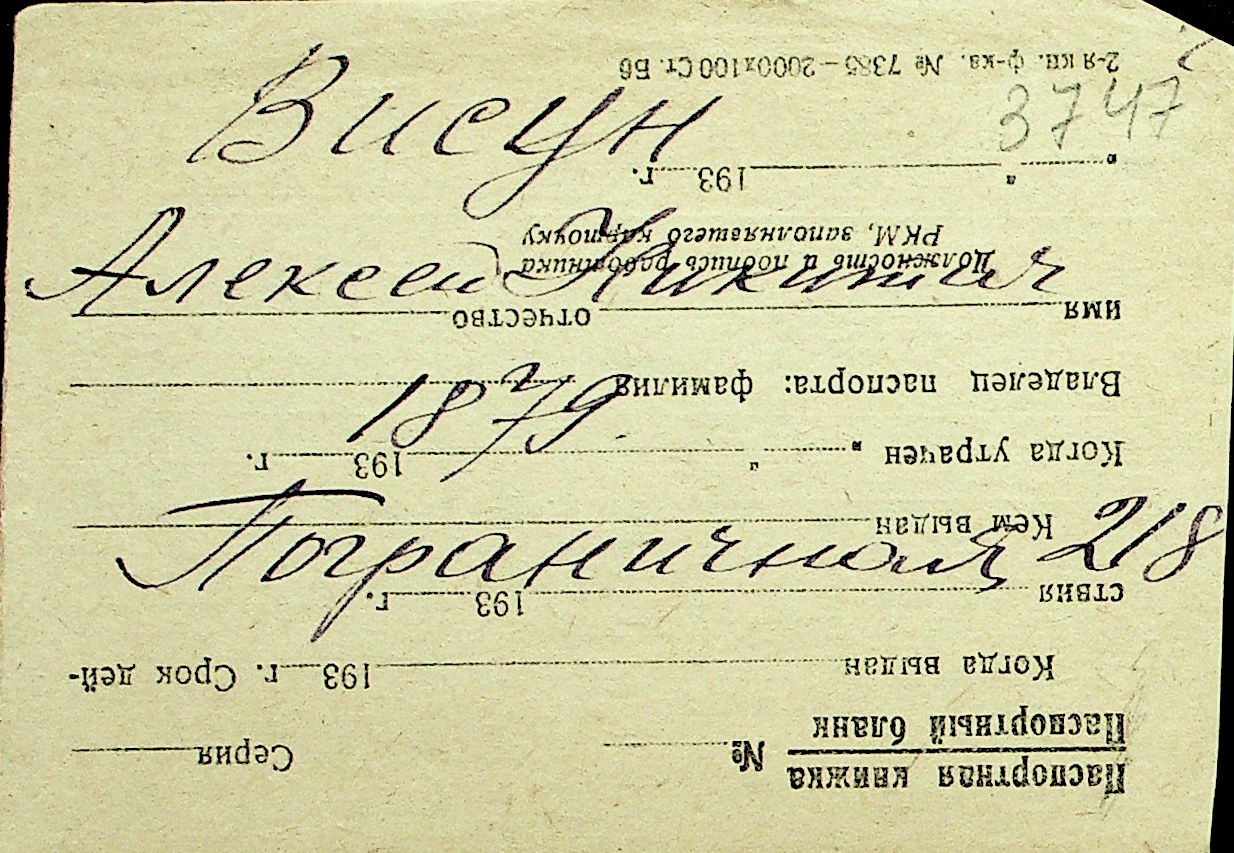 3747
Висун
Алексей Никитич
1879
Пограничная 218
Паспортная книжка
Паспортный бланк № Серия
Когда выдан 193 г. Срок дей-
ствия 193 г.
Кем выдан
Когда утрачен „ " 193 г.
Владелец паспорта: фамилия
имя отчество
Должность и подпись работника
РКМ, заполнявшего карточку
„ " 193 г.
2-я кн. ф-ка. № 7385—2000х100 Ст. Бб